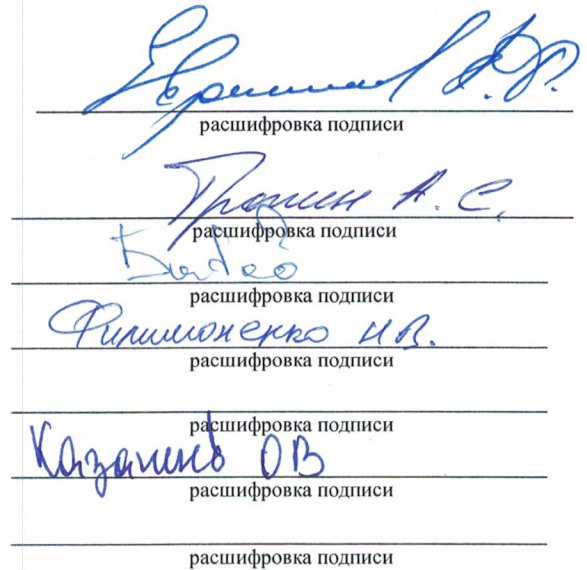 расшифровка подписи
Тропин А. С.
расшифровка подписи
расшифровка подписи
Филимоненко Н.В.
расшифровка подписи
расшифровка подписи
ОВ
расшифровка подписи
расшифровка подписи